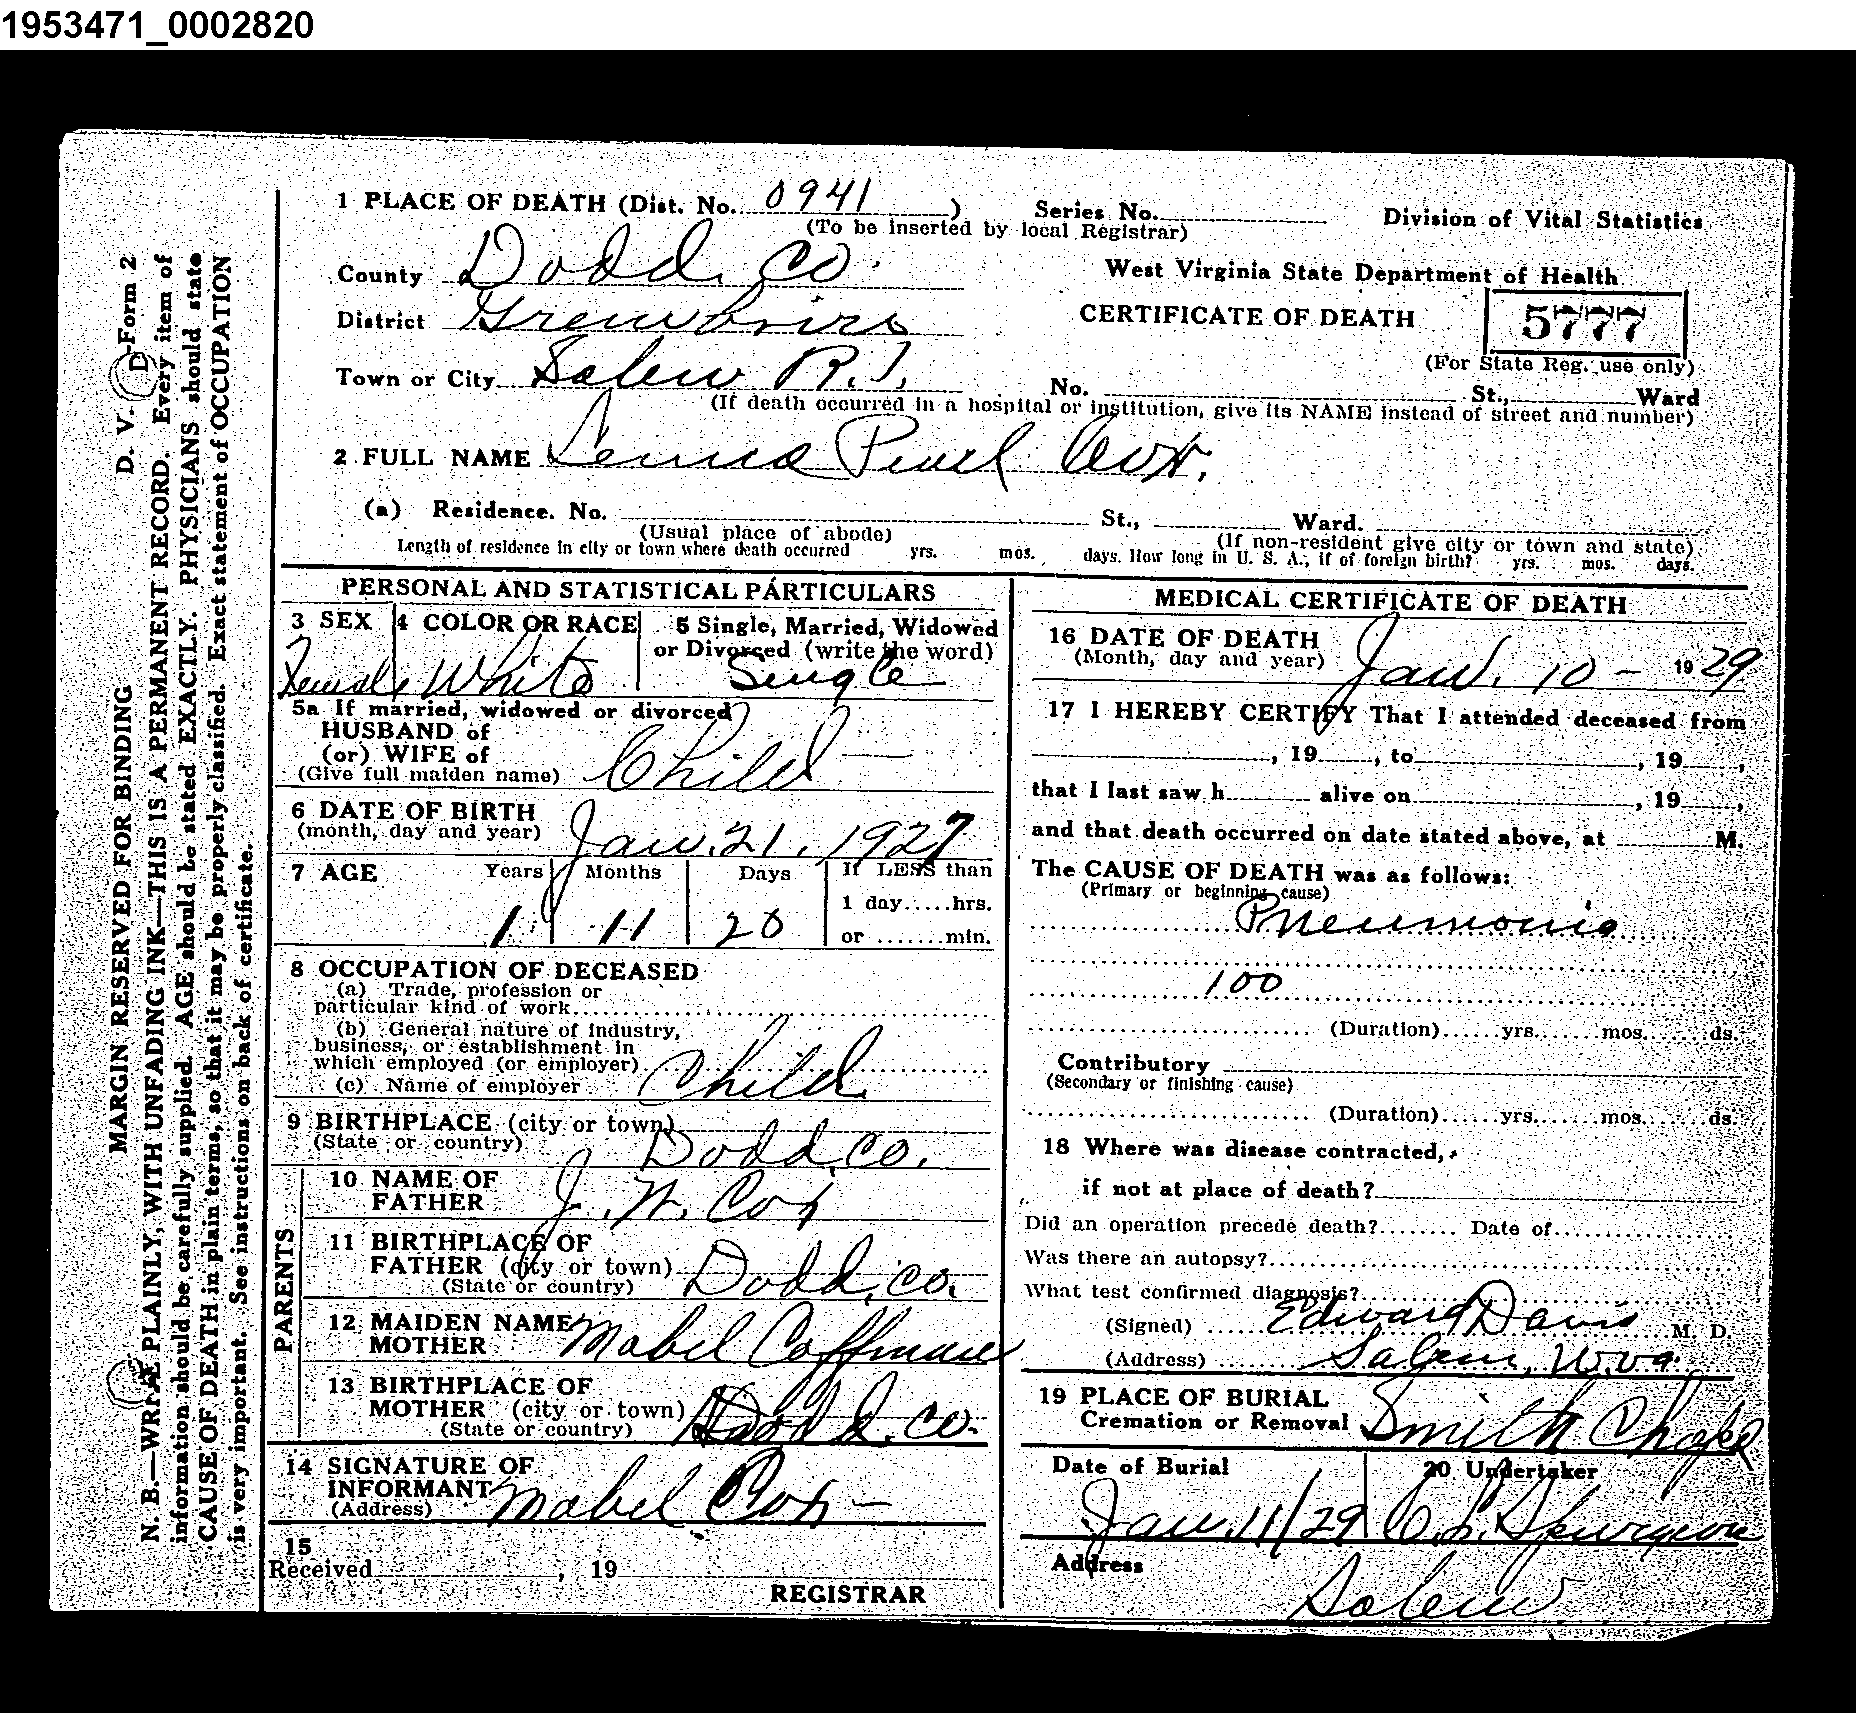 1953471_0002820
1 PLACE OF DEATH (Dist. No. 0941 ) Series No. Division of Vital Statistics
(To be inserted by local Registrar)
County Dodd. Co. West Virginia State Department of Health
District CERTIFICATE OF DEATH 5777
(For State Reg. use only)
Town or City Salem R.1. No. St., Ward
(If death occurred in a hospital or institution, give its NAME instead of street and number)
2 FULL NAME Pearl Cox.
(a) Residence. No. St., Ward.
(Usual place of abode) (If non-resident give city or town and state)
Length of residence in city or town where death occurred yrs. mos. days. How long in U. S. A., if of foreign birth? yrs. mos. days.
PERSONAL AND STATISTICAL PARTICULARS
3 SEX 4 COLOR OR RACE 5 Single, Married, Widowed
or Divorced (write the word)
Female White Single
5a If married, widowed or divorced
HUSBAND of
(or) WIFE of
(Give full maiden name) Child
6 DATE OF BIRTH
(month, day and year) Jan. 21, 1927
7 AGE Years Months Days If LESS than
1 day.....hrs.
1 11 20 or .......min.
8 OCCUPATION OF DECEASED
(a) Trade, profession or
particular kind of work
(b) General nature of industry,
business, or establishment in
which employed (or employer)
(c) Name of employer Child
9 BIRTHPLACE (city or town)
(State or country) Dodd. Co.
PARENTS
10 NAME OF
FATHER J. W. Cox
11 BIRTHPLACE OF
FATHER (city or town)
(State or country) Dodd. Co.
12 MAIDEN NAME
MOTHER Mabel Coffman
13 BIRTHPLACE OF
MOTHER (city or town)
(State or country) Dodd. Co.
14 SIGNATURE OF
INFORMANT Mabel Cox
(Address)
15
Received , 19
REGISTRAR
MEDICAL CERTIFICATE OF DEATH
16 DATE OF DEATH
(Month, day and year) Jan. 10 - 1929
17 I HEREBY CERTIFY That I attended deceased from
, 19 , to , 19 ,
that I last saw h alive on , 19 ,
and that death occurred on date stated above, at M.
The CAUSE OF DEATH was as follows:
(Primary or beginning cause)
Pneumonia
100
(Duration)......yrs.......mos.......ds.
Contributory
(Secondary or finishing cause)
(Duration)......yrs.......mos.......ds.
18 Where was disease contracted,
if not at place of death?
Did an operation precede death?........ Date of
Was there an autopsy?
What test confirmed diagnosis?
(Signed) Edward Davis M. D.
(Address) Salem, W. Va.
19 PLACE OF BURIAL
Cremation or Removal Smith Chapel
Date of Burial 20 Undertaker
Jan. 11/29 C. L. Spurgeon
Address
Salem
D. V. D-Form 2
MARGIN RESERVED FOR BINDING
N. B.—WRITE PLAINLY, WITH UNFADING INK—THIS IS A PERMANENT RECORD. Every item of
information should be carefully supplied. AGE should be stated EXACTLY. PHYSICIANS should state
CAUSE OF DEATH in plain terms, so that it may be properly classified. Exact statement of OCCUPATION
is very important. See instructions on back of certificate.